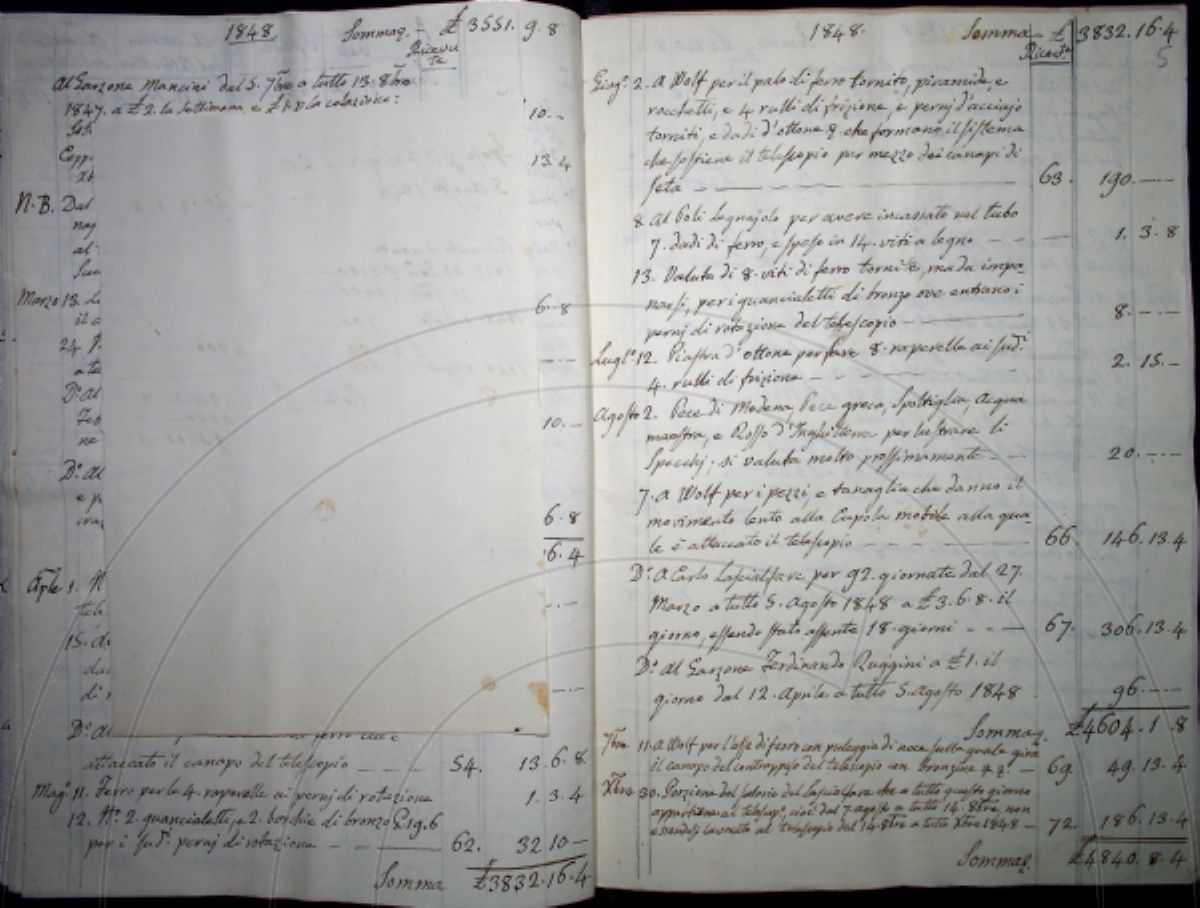 1848. Sommaq. £ 3551. 9. 8
Ricevute
Al Garzone Mancini del 5. 7bre a tutto 13. 8bre
1847. a £ 2. la settimana e £ la colazione:
10. —
13. 4
N.B. Dal
al
Marzo 18. 6. 8
il
24
a
Do. Al
Feb 10. —
ne
Do. Al
e p
6. 8
6. 4
Aple 1.
tele
15.
di
Do. al
attaccato il canapo del telescopio — 54. 13. 6. 8.
Mago. 11. Ferro per le 4. raperelle ai pernj di rotazione 1. 3. 4
12. No. 2. guancialetti, e 2. borchie di bronzo 19. 6
per i sudi. pernj di rotazione — 62. 32 10 —
Somma £3832. 16. 4
1848. Somma — £ 3832. 16. 4
Ricevte 5
Giugo. 2. A Wolf per il palo di ferro tornito, piramide, e
rocchetti, e 4 rulli di frizione, e pernj d'acciajo
torniti, e dadi d'ottone & che formano il sistema
che sostiene il telescopio per mezzo dei canapi di
seta — 63. 190. —
8. Al Poli Legnajolo per avere incassato nel tubo
7. dadi di ferro, e spese in 14. viti a legno — 1. 3. 8
13. Valuta di 8. viti di ferro tornite, ma da impa-
narsi, per i guancialetti di bronzo ove entrano i
pernj di rotazione del telescopio — 8. —
Luglo. 12. Piastra d'ottone per fare 8. raperelle ai sudi.
4. rulli di frizione — 2. 15. —
Agosto 2. Pece di Modena, Pece greca, Spoltiglia, Acqua
maestra, e Rosso d'Inghilterra per lustrare li
Specchj; si valuta molto prossimamente — 20. —
7. A Wolf per i pezzi, e tanaglia che danno il
movimento lento alla Cupola mobile alla qua-
le è attaccato il telescopio — 66. 146. 13. 4
Do. A Carlo Lascialfare per 92. giornate dal 27.
Marzo a tutto 5. Agosto 1848 a £ 3. 6. 8. il
giorno, essendo stato assente 18. giorni — 67. 306. 13. 4
Do. Al Garzone Ferdinando Ruggini a £ 1. il
giorno dal 12. Aprile a tutto 5. Agosto 1848 96. —
Sommaq. £4604. 1. 8
7bre 11. A Wolf per l'asse di ferro con puleggia di noce sulla quale gira
il canapo del contrappeso del telescopio con bronzine & — 69. 49. 13. 4
Xbre 30. Porzione del salario del Lascialfare che a tutto questo giorno
appartiene al telescop. cioè dal 7. agosto a tutto 14. 8bre, non
essendosi lavorato al telescopio dal 14. 8bre a tutto Xbre 1848 — 72. 186. 13. 4
Sommaq. £4840. 8. 4